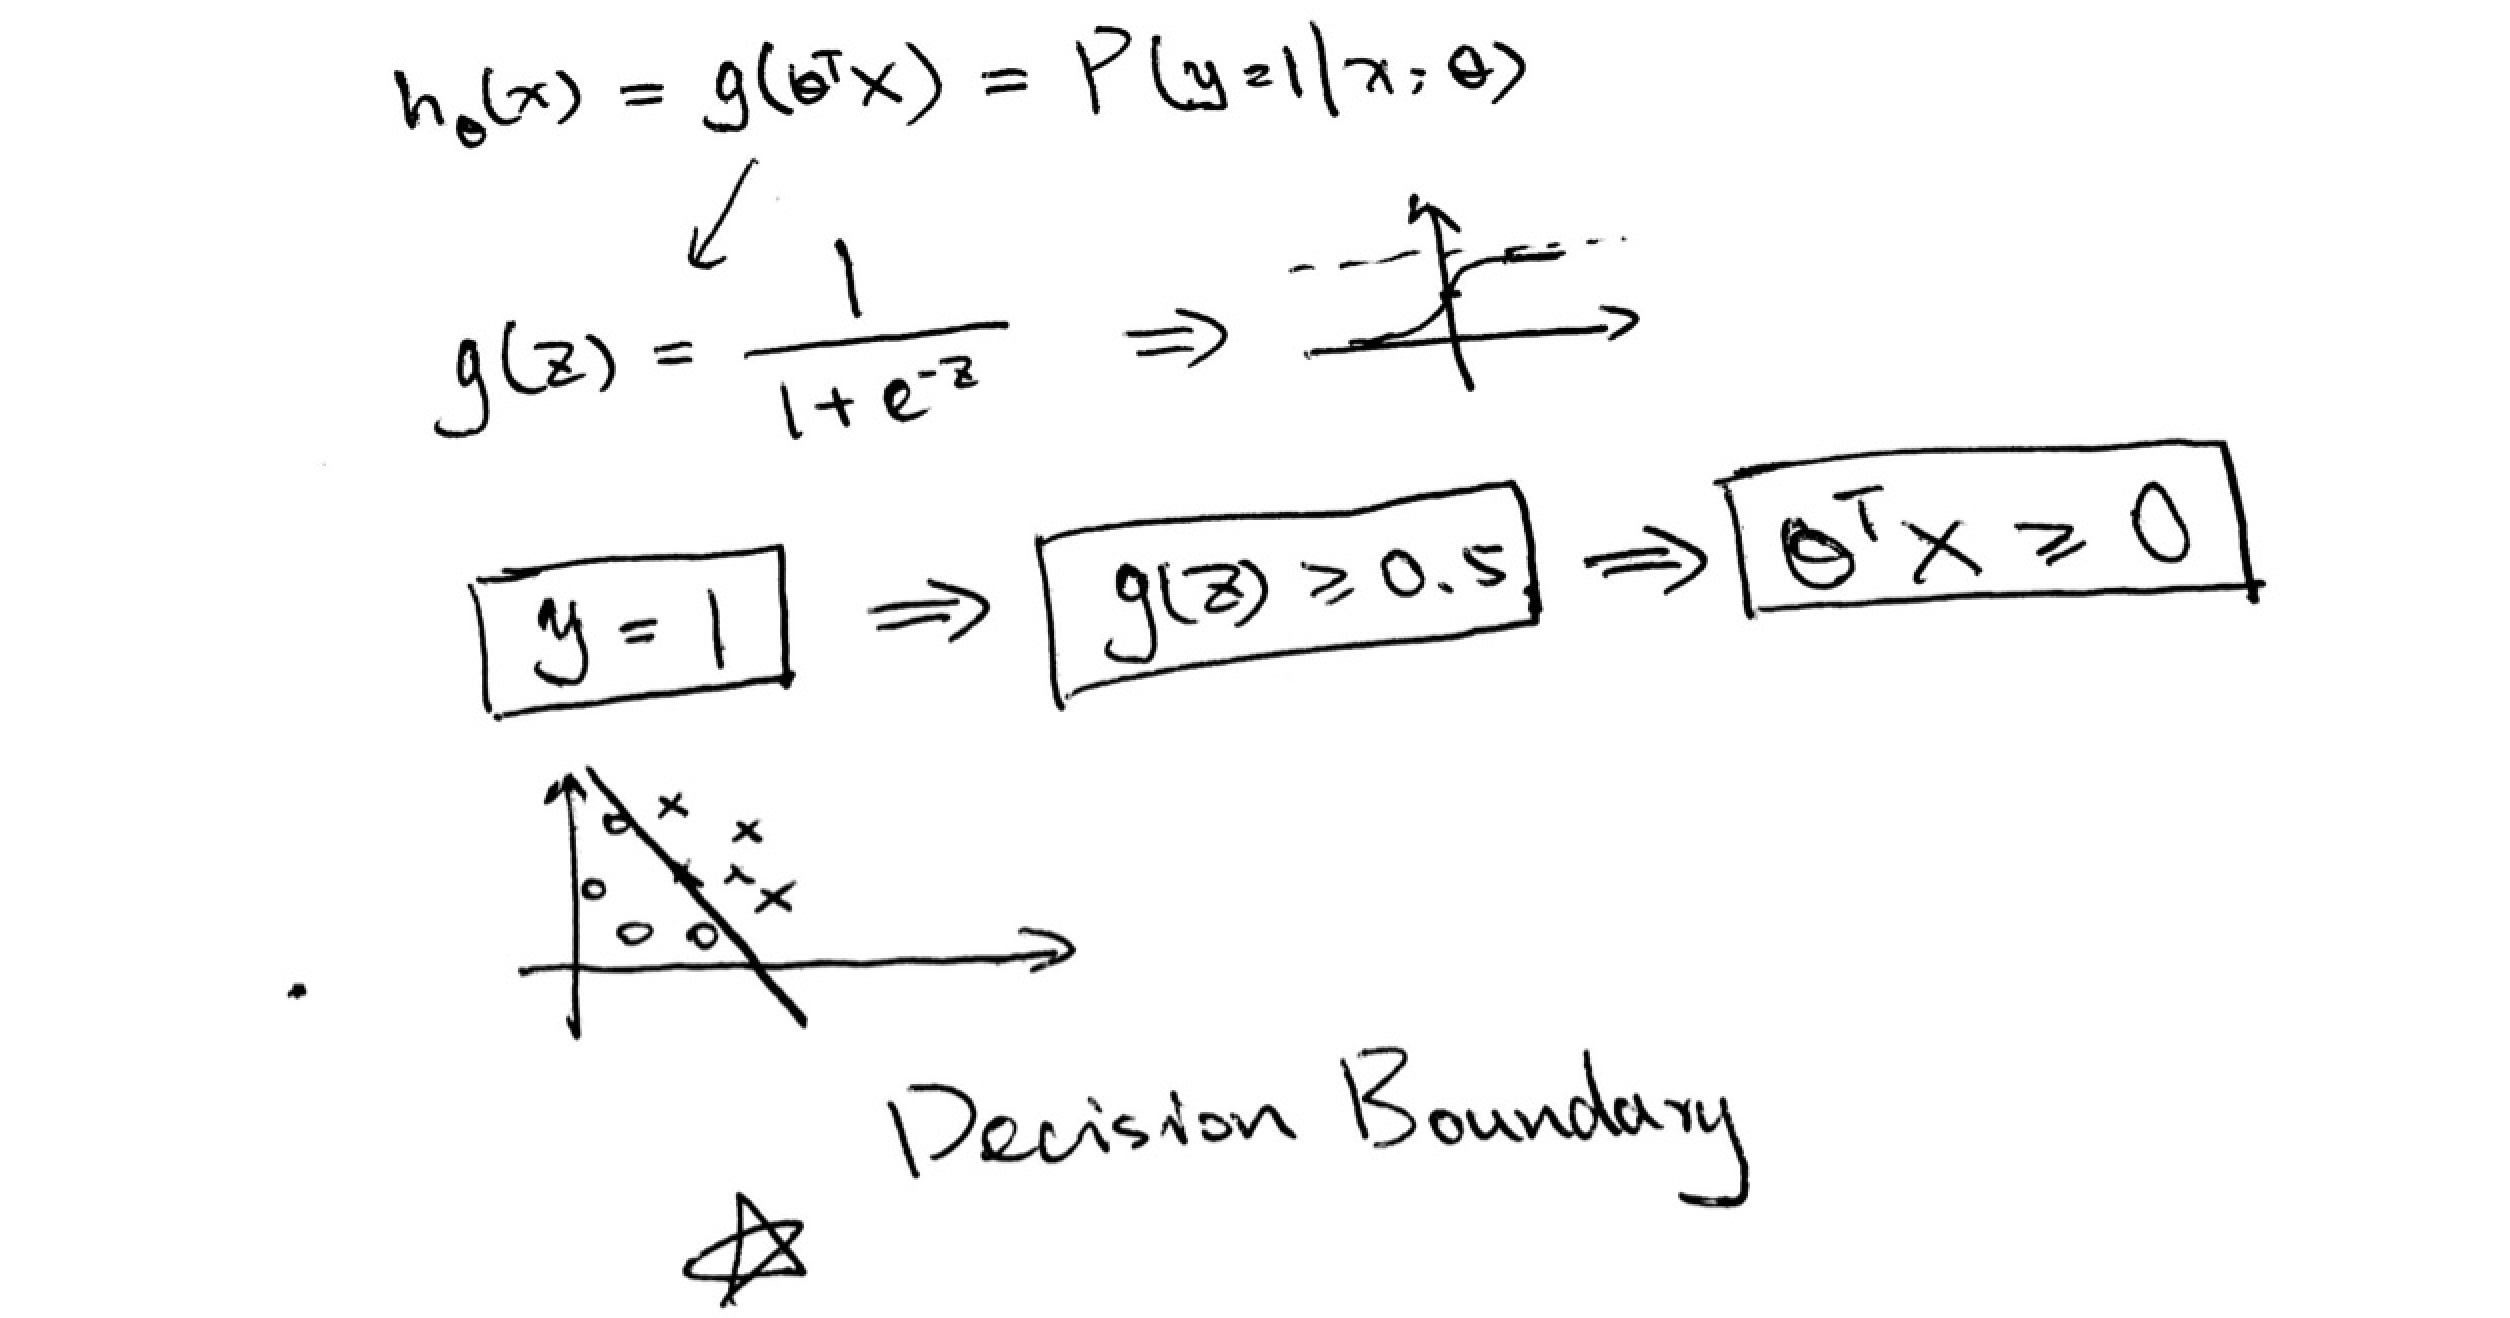 h_θ(x) = g(θᵀx) = P(y=1|x; θ)
g(z) = 1/(1+e⁻ᶻ) ⇒
y = 1 ⇒ g(z) ≥ 0.5 ⇒ θᵀx ≥ 0
Decision Boundary